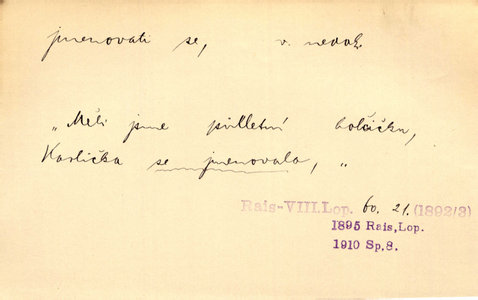 jmenovati se, v. nedok.
„Měli jsme půlletní holčičku,
Karlička se jmenovala, „
Rais-VIII.Lop. 60. 21. (1892/3)
1895 Rais,Lop.
1910 Sp.8.